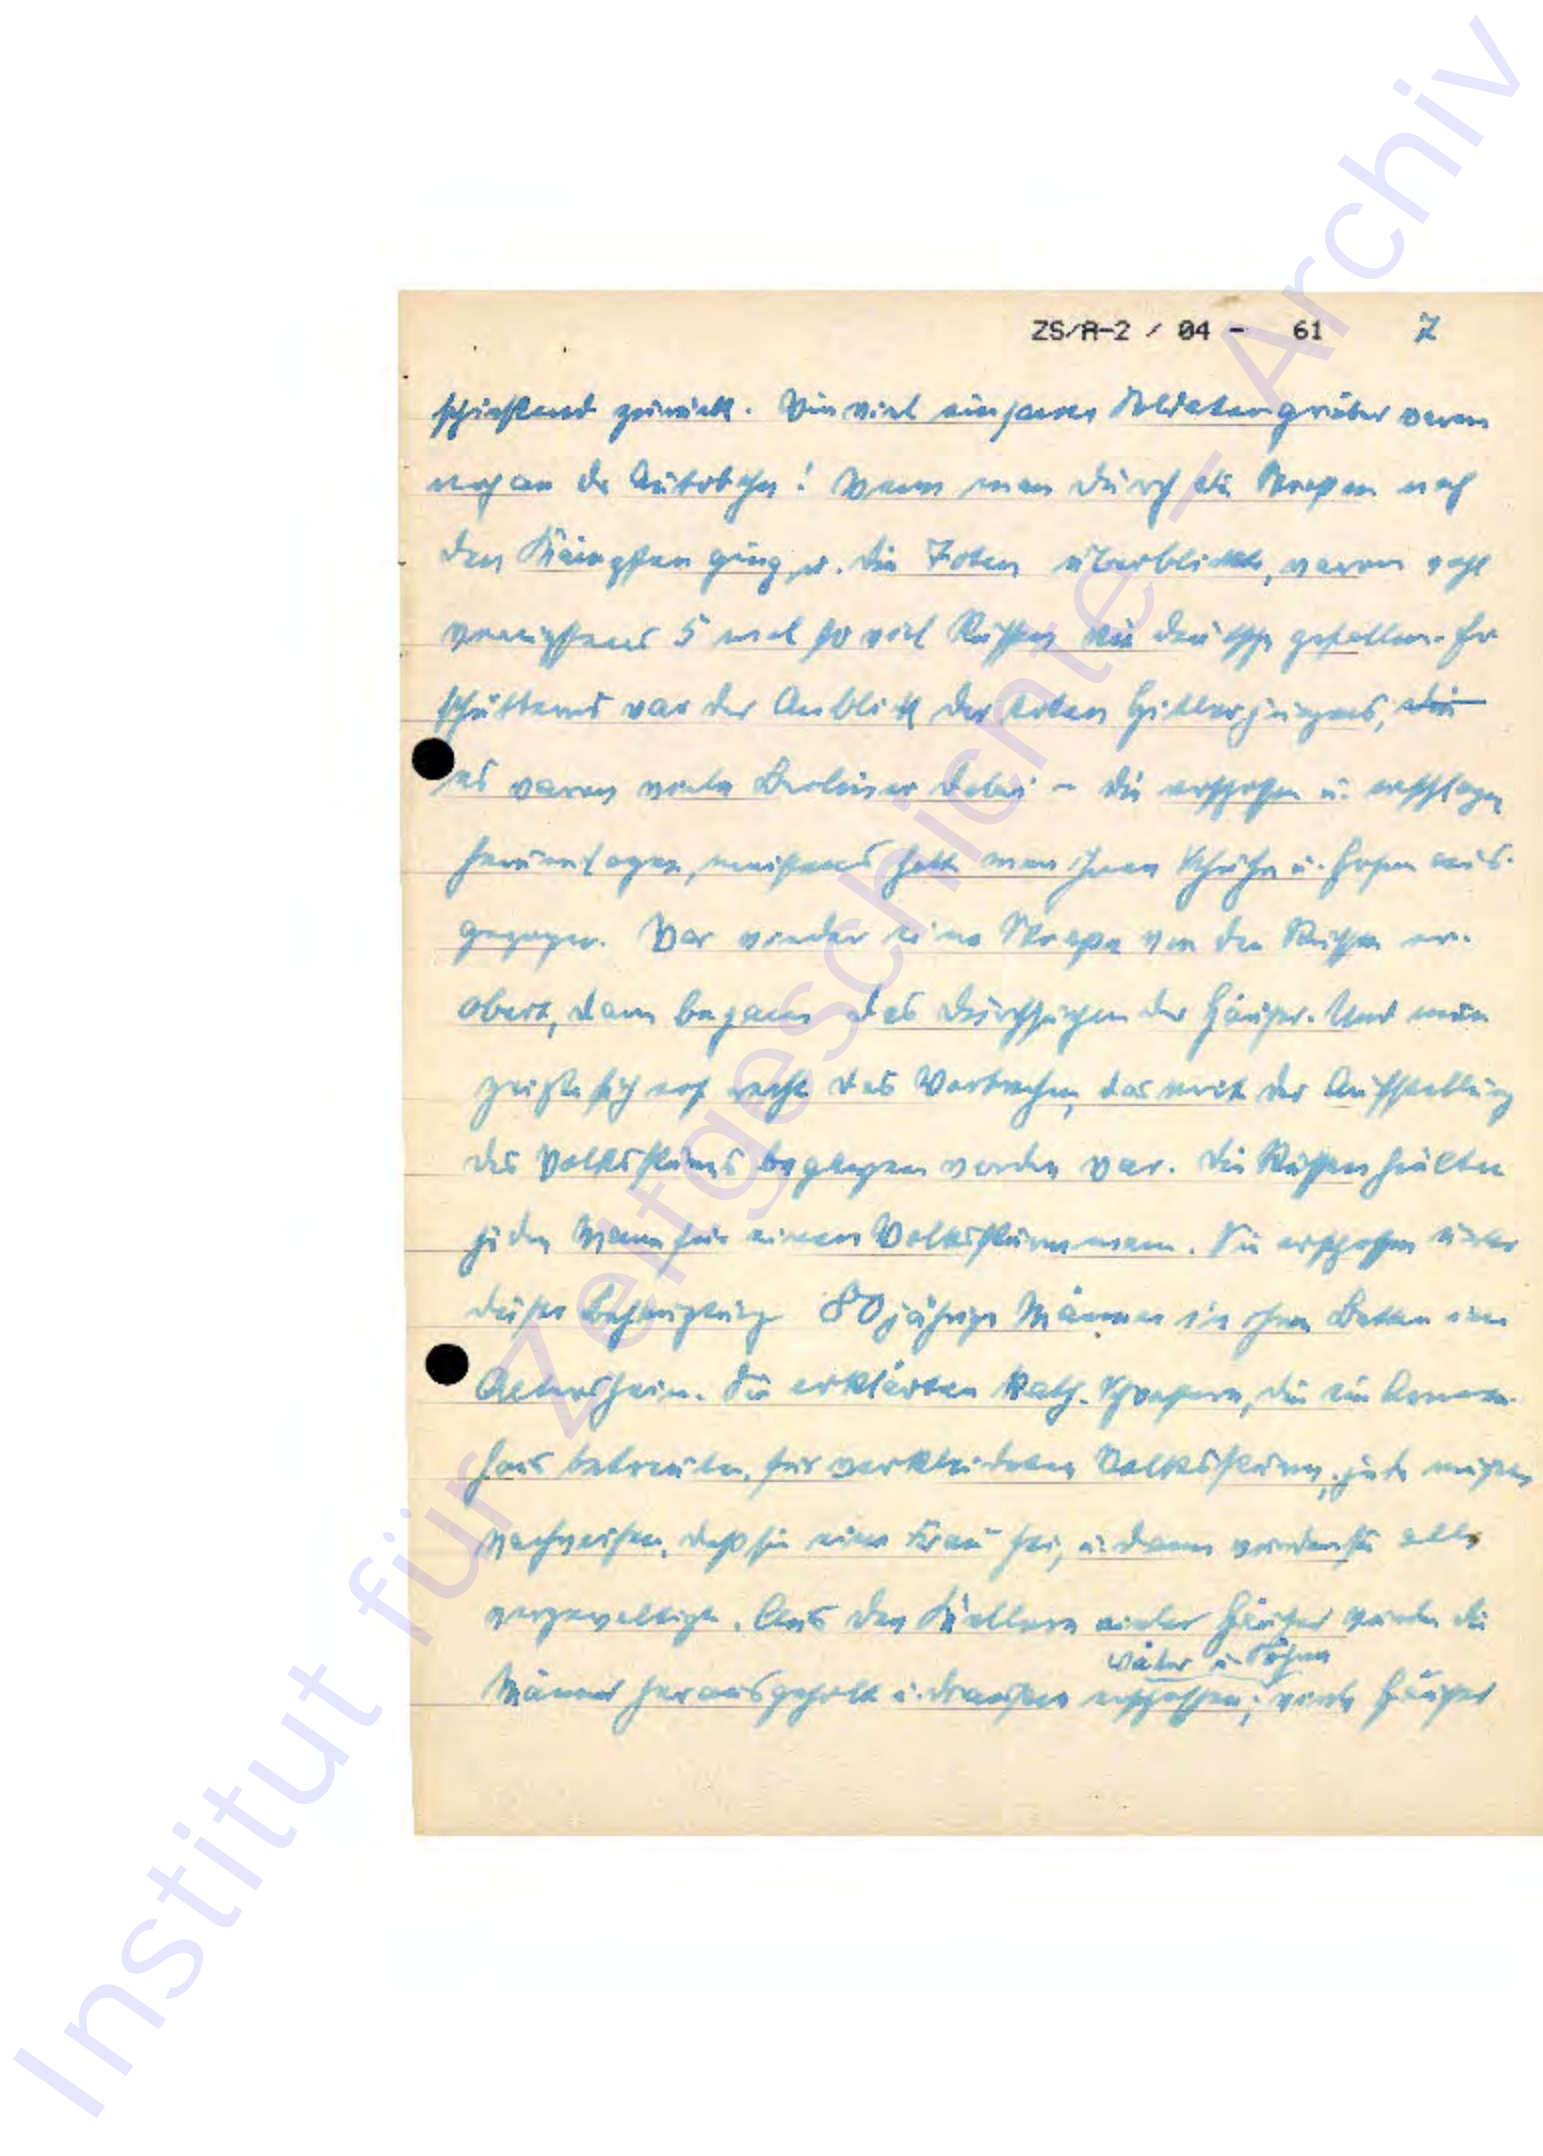 ZS/A-2 / 04 - 61 7
schießend zurück. Wie viel einsame Soldatengräber waren
noch an der Autobahn! Wenn man durch die Straßen nach
den Kämpfen ging u. die Toten überblickte, waren wohl
wenigstens 5 mal so viel Russen wie deutsche gefallen. Er
schütternd war der Anblick der toten Hitlerjungens, die
es waren viele Berliner dabei – die erschossen u. erschlagen
herumlagen, meistens hatte man ihnen Schuhe u. Hosen aus-
gezogen. War wieder eine Straße von den Russen er-
obert, dann begann das Durchsuchen der Häuser. Und nun
zeigte sich erst recht das Verbrechen, das mit der Aufstellung
des Volkssturms begangen worden war. Die Russen hielten
jeden Mann für einen Volkssturmmann. Sie erschossen unter
dieser Behauptung 80jährige Männer in ihren Betten im
Altersheim. Sie erklärten kath. Schwestern, die ein Armen-
haus betreuten, für verkleideten Volkssturm, jede mußte
nachweisen, daß sie eine Frau sei, u. dann wurden sie alle
vergewaltigt. Aus den Kellern vieler Häuser wurden die
Väter u. Söhne
Männer herausgeholt u. draußen erschossen; viele Häuser
Institut für Zeitgeschichte - Archiv